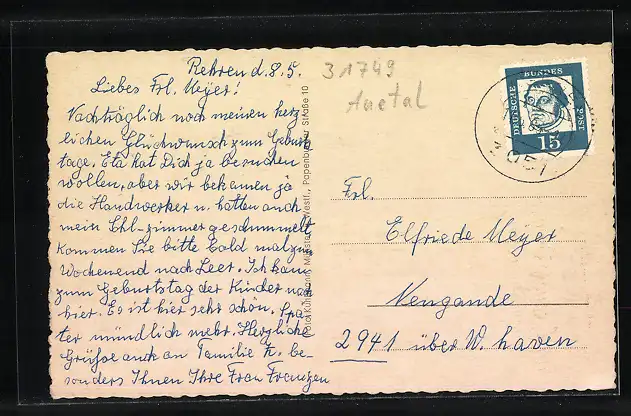 Rehren d. 8.5.
Liebes Frl. Meyer!
Nachträglich noch meinen herz
lichen Glückwunsch zum Geburts
tage. Eta hat Dich ja besuchen
wollen, aber wir bekamen ja
die Handwerker u. hatten auch
mein Schl-zimmer geschummelt
Kommen Sie bitte bald mal zum
Wochenend nach Leer. Ich kam
zum Geburtstag der Kinder nach
hier. Es ist hier sehr schön. Spä
ter mündlich mehr. Herzliche
Grüße auch an Familie K. be-
sonders Ihnen Ihre Frau Franzen
Münster Westf., Papenburger Straße 10
31749
Auetal
DEUTSCHE BUNDES POST
15
3051
Frl.
Elfriede Meyer
Nengande
2941 über W. haven